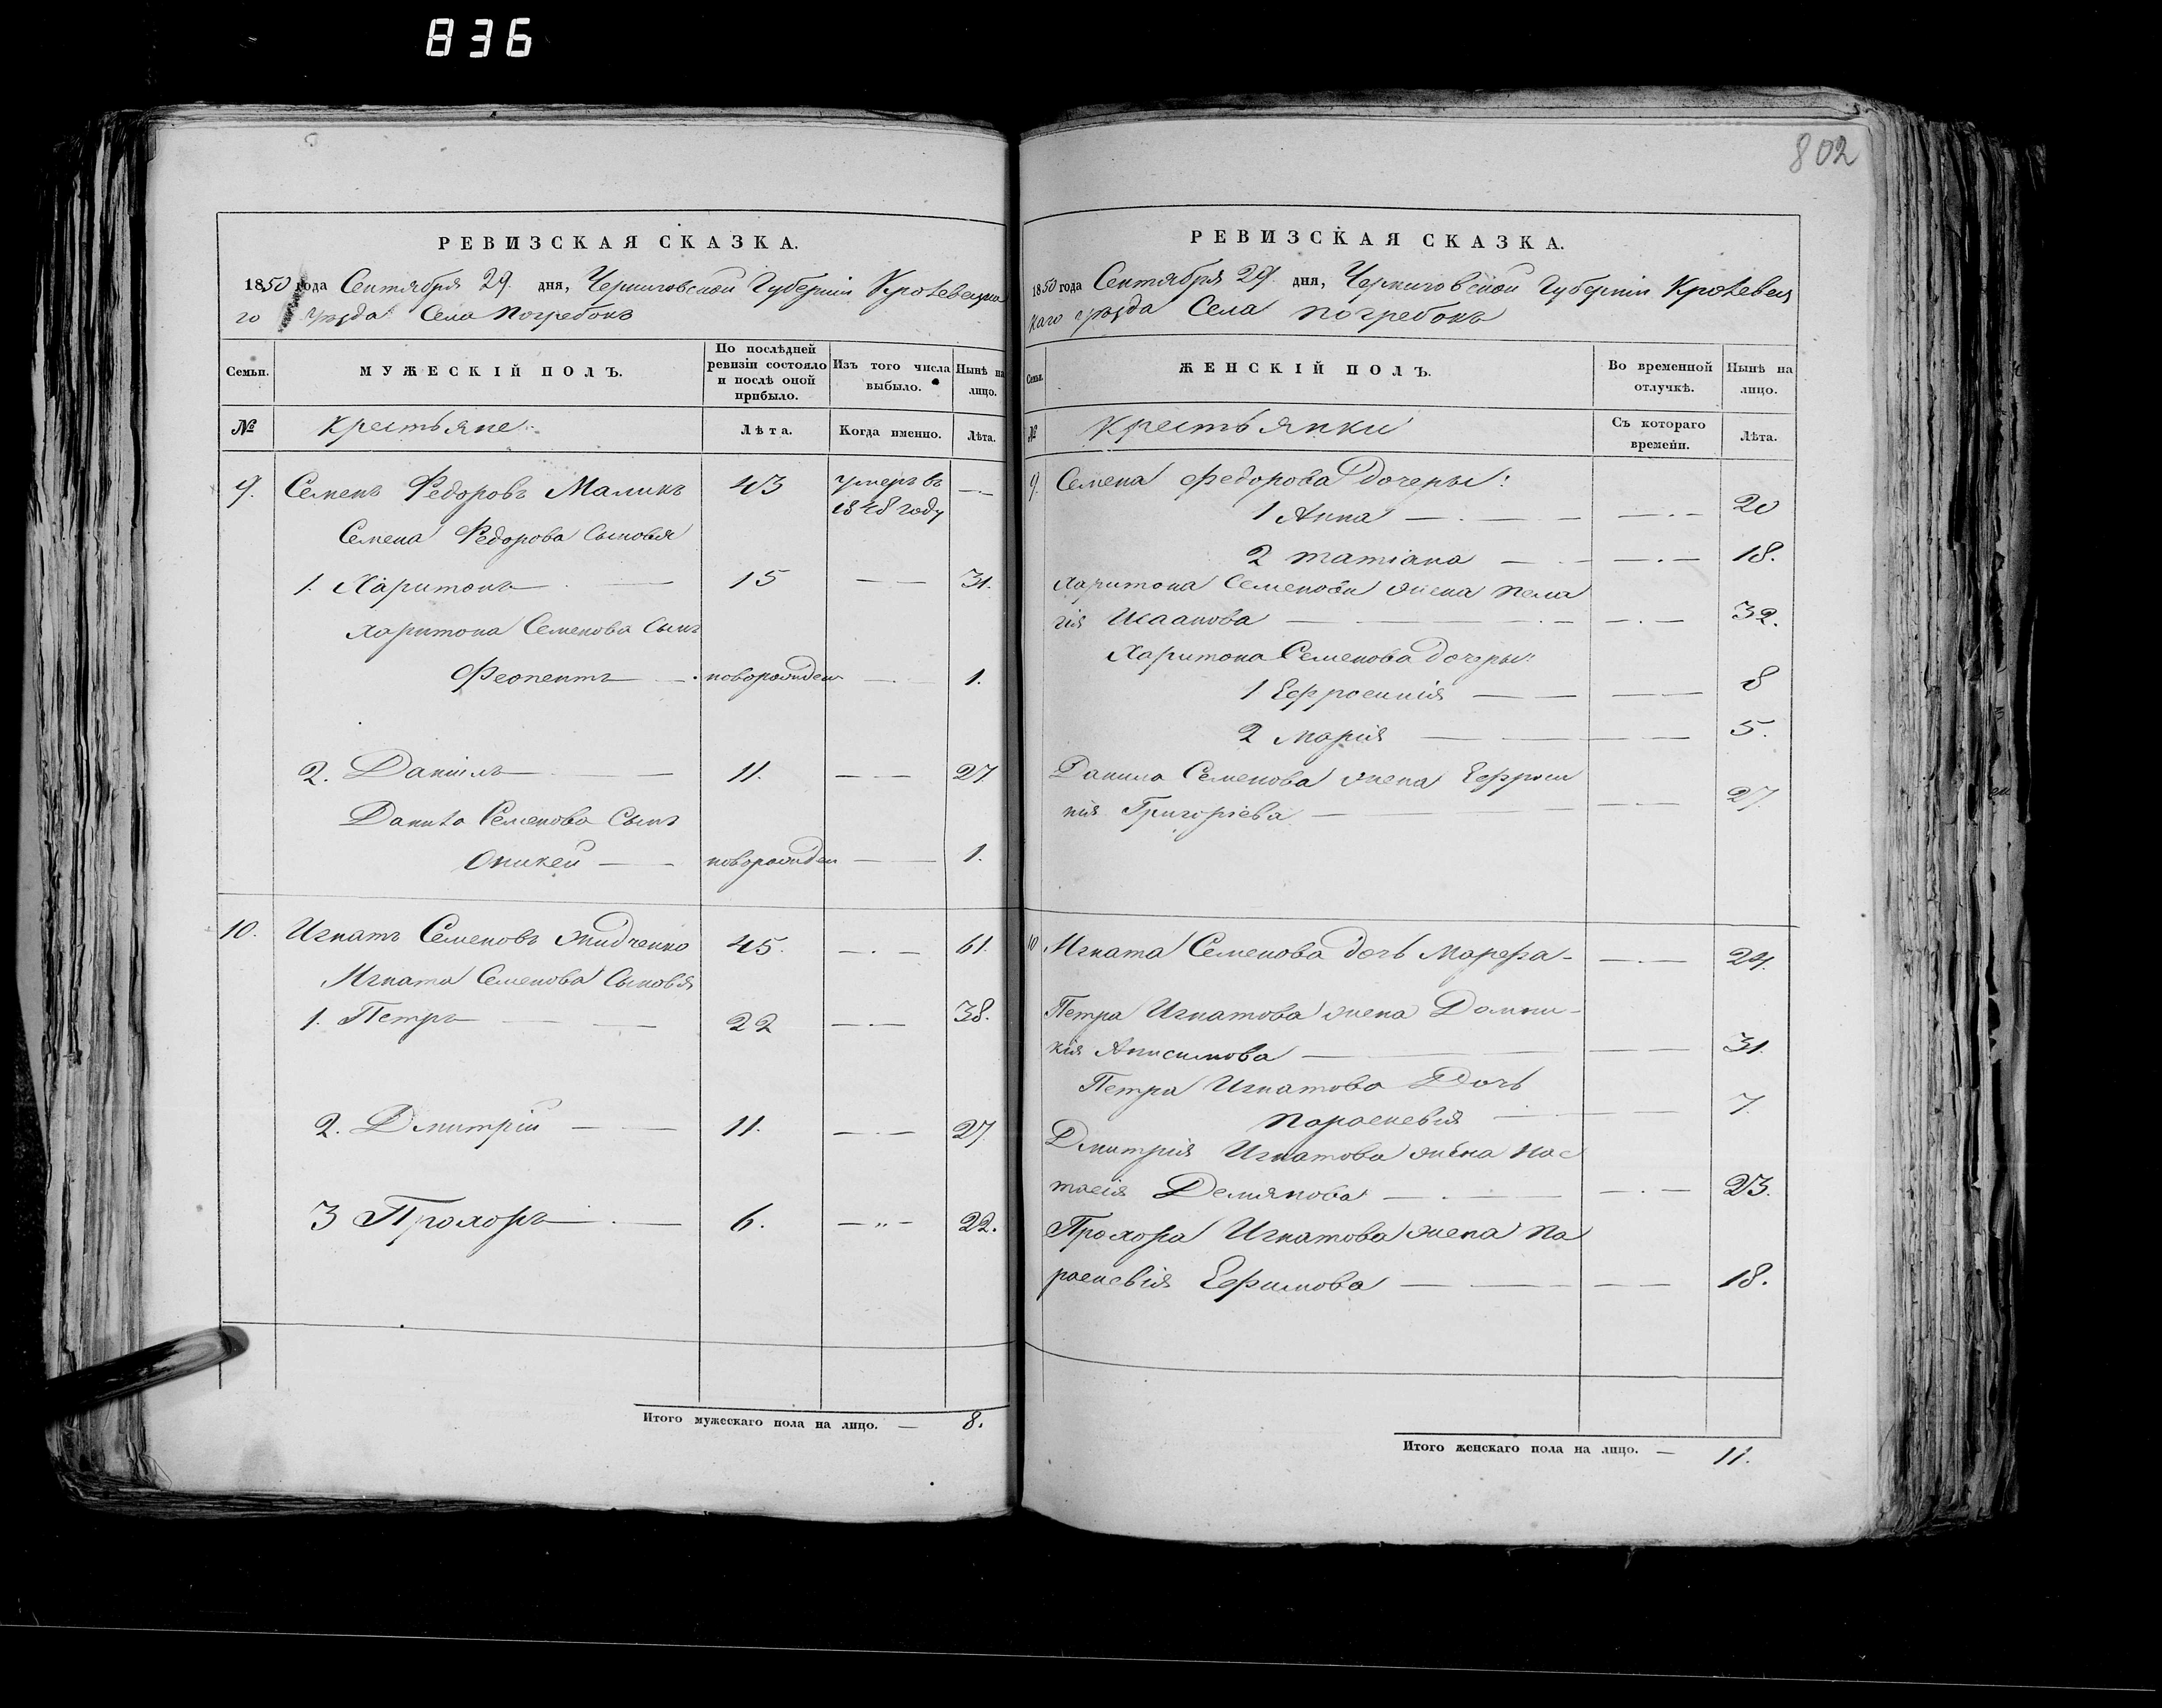 836
РЕВИЗСКАЯ СКАЗКА.
1850 года Сентября 29. дня, Черниговской Губерніи Кролевецка
го уѣзда Села Погребокъ
Семьи.
МУЖЕСКІЙ ПОЛЪ.
По послѣдней ревизіи состояло и послѣ оной прибыло.
Изъ того числа выбыло.
Нынѣ на лицо.
№
Крестьяне.
Лѣта.
Когда именно.
Лѣта.
9. Семенъ Федоровъ Маликъ 43 умеръ въ 1848 году —
Семена Федорова Сыновья
1. Харитонъ — 15 — — 31.
Харитона Семенова Сынъ
Феопентъ — новорожден — 1.
2. Даніилъ — 11. — — 27
Данила Семенова Сынъ
Оникей — новорожден — 1.
10. Игнатъ Семеновъ Жидченко 45. — 61.
Игната Семенова Сыновья
1. Петръ — 22 — 38.
2. Дмитрій — 11. — 27.
3 Прохоръ — 6. — 22.
Итого мужескаго пола на лицо. — 8.
802
РЕВИЗСКАЯ СКАЗКА.
1850 года Сентября 29. дня, Черниговской Губерніи Кролевец
каго уѣзда Села Погребокъ
Семьи.
ЖЕНСКІЙ ПОЛЪ.
Во временной отлучкѣ.
Нынѣ на лицо.
№
Крестьянки
Съ котораго времени.
Лѣта.
9. Семена Федорова Дочеры:
1 Анна — — 20
2 Татіана — — 18.
Харитона Семенова жена Пела
гія Исаакова — — 32.
Харитона Семенова дочеры:
1 Ефросинія — — 8
2 Марія — — 5.
Данила Семенова жена Ефроси
нія Григоріева — — 27.
10 Игната Семенова дочь Марфа — — 24.
Петра Игнатова жена Домни-
кія Анисимова — — 31.
Петра Игнатова Дочь
Параскевія — — 7.
Дмитрія Игнатова жена Нас
тасія Демянова — — 23.
Прохора Игнатова жена Па
раскевія Ефимова — — 18.
Итого женскаго пола на лицо. — 11.